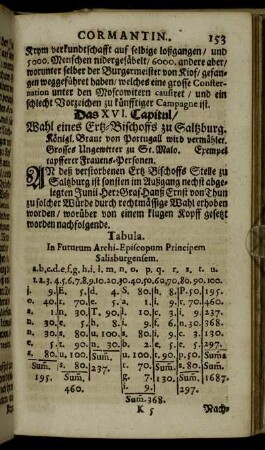 CORMANTIN. 153
Krym verkundtschafft auf selbige loßgangen/ und
5000. Menschen nidergesäbelt/ 6000. andere aber/
worunter selber der Burgermeister von Kiof/ gefan-
gen weggeführet haben/ welches eine grosse Conster-
nation unter den Moscowitern causiret/ und ein
schlecht Vorzeichen zu künfftiger Campagne ist.
Das XVI. Capitul/
Wahl eines Ertz-Bischoffs zu Saltzburg.
Königl. Braut von Portugall wird vermählet.
Grosses Ungewitter zu St. Malo. Exempel
tapfferer Frauens-Personen.
AN deß verstorbenen Ertz Bischoffs Stelle zu
Saltzburg ist sonsten im Außgang nechst abge-
legten Junii Herr Graf Hantz Ernst von Thun
zu solcher Würde durch rechtmässige Wahl erhoben
worden/ worüber von einem klugen Kopff gesetzt
worden nachfolgende.
Tabula.
In Futurum Archi-Episcopum Principem
Salisburgensem.
a. b. c. d. e. f. g. h. i. l. m. n. o. p. q. r. s. t. u.
1. 2. 3. 4. 5. 6. 7. 8. 9. 10. 20. 30. 40. 50. 60. 70. 80. 90. 100.
i. 9. e. 5. d. 4. S. 80. h. 8. p. 50. 195.
o. 40. r. 70. e. 5. a. 1. a. 1. r. 70. 460.
a. 1. n. 30. T. 90. l. 10. c. 3. i. 9. 237.
n. 30. e. 5. h. 8. i. 9. e. 5. n. 30. 368.
n. 30. s. 80. u. 100. s. 80. r. 70. c. 3. 130.
e. 5. t. 90. n. 30. b. 2. i. 9. e. 5. 297.
s. 80. u. 100. Sum. u. 100. t. 90. p. 50. Sum.
Sum. s. 80. 237. r. 70. Sum. s. 80. 1687.
195. Sum. g. 7. 130. Sum.
460. i. 9. 297.
Sum. 368.
K 5 Nach-